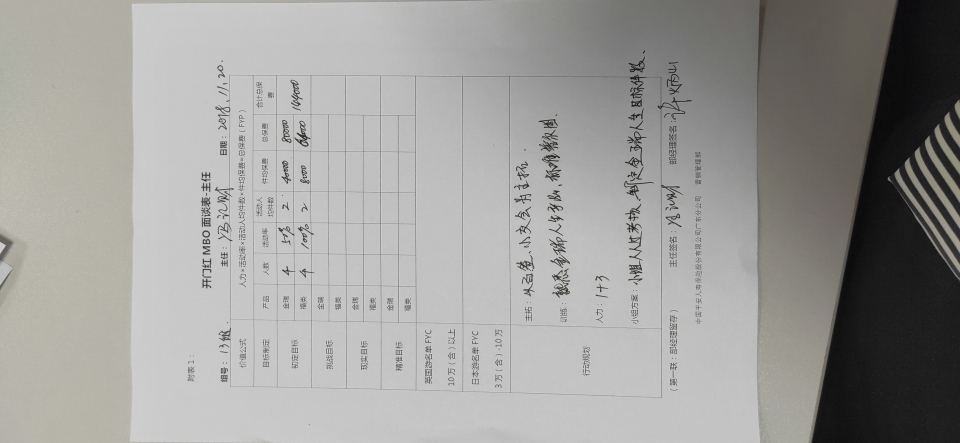 附表 1：
开门红 MBO 面谈表-主任
编号： 主任： 日期：2018.11.20.
价值公式 人力×活动率×活动人均件数×件均保费=总保费（FYP）
目标制定 产品 人数 活动率 活动人均件数 件均保费 总保费 合计总保费
初定目标 金瑞 4 50% 2 40000 80000 144000
福类 4 100% 2 8000 64000
挑战目标 金瑞
福类
现实目标 金瑞
福类
精准目标 金瑞
福类
英国游名单 FYC
10 万（含）以上
日本游名单 FYC
3 万（含）-10 万
行动规划
主拓：小交会为主拓.
训练：熟悉金瑞人生
人力：1+3
小组方案：小组人人过考核, 制定金瑞人生目标件数.
（第一联：部经理留存） 主任签名： 部经理签名：
中国平安人寿保险股份有限公司广东分公司 营销管理部